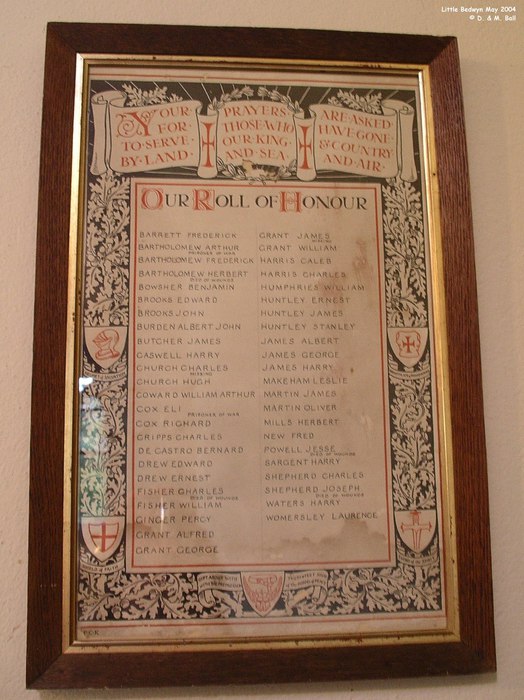 Little Bedwyn May 2004
© D. & M. Ball
YOUR · PRAYERS · ARE · ASKED
FOR · THOSE · WHO HAVE · GONE
TO · SERVE · OUR · KING · & COUNTRY
BY · LAND · AND · SEA · AND · AIR ·
OUR ROLL OF HONOUR
BARRETT FREDERICK
BARTHOLOMEW ARTHUR
PRISONER OF WAR
BARTHOLOMEW FREDERICK
BARTHOLOMEW HERBERT
DIED OF WOUNDS
BOWSHER BENJAMIN
BROOKS EDWARD
BROOKS JOHN
BURDEN ALBERT JOHN
BUTCHER JAMES
CASWELL HARRY
CHURCH CHARLES
MISSING
CHURCH HUGH
COWARD WILLIAM ARTHUR
COX ELI
PRISONER OF WAR
COX RICHARD
CRIPPS CHARLES
DE CASTRO BERNARD
DREW EDWARD
DREW ERNEST
FISHER CHARLES
DIED OF WOUNDS
FISHER WILLIAM
GINGER PERCY
GRANT ALFRED
GRANT GEORGE
GRANT JAMES
MISSING
GRANT WILLIAM
HARRIS CALEB
HARRIS CHARLES
HUMPHRIES WILLIAM
HUNTLEY ERNEST
HUNTLEY JAMES
HUNTLEY STANLEY
JAMES ALBERT
JAMES GEORGE
JAMES HARRY
MAKEHAM LESLIE
MARTIN JAMES
MARTIN OLIVER
MILLS HERBERT
NEW FRED
POWELL JESSE
DIED OF WOUNDS
SARGENT HARRY
SHEPHERD CHARLES
SHEPHERD JOSEPH
DIED OF WOUNDS
WATERS HARRY
WOMERSLEY LAURENCE